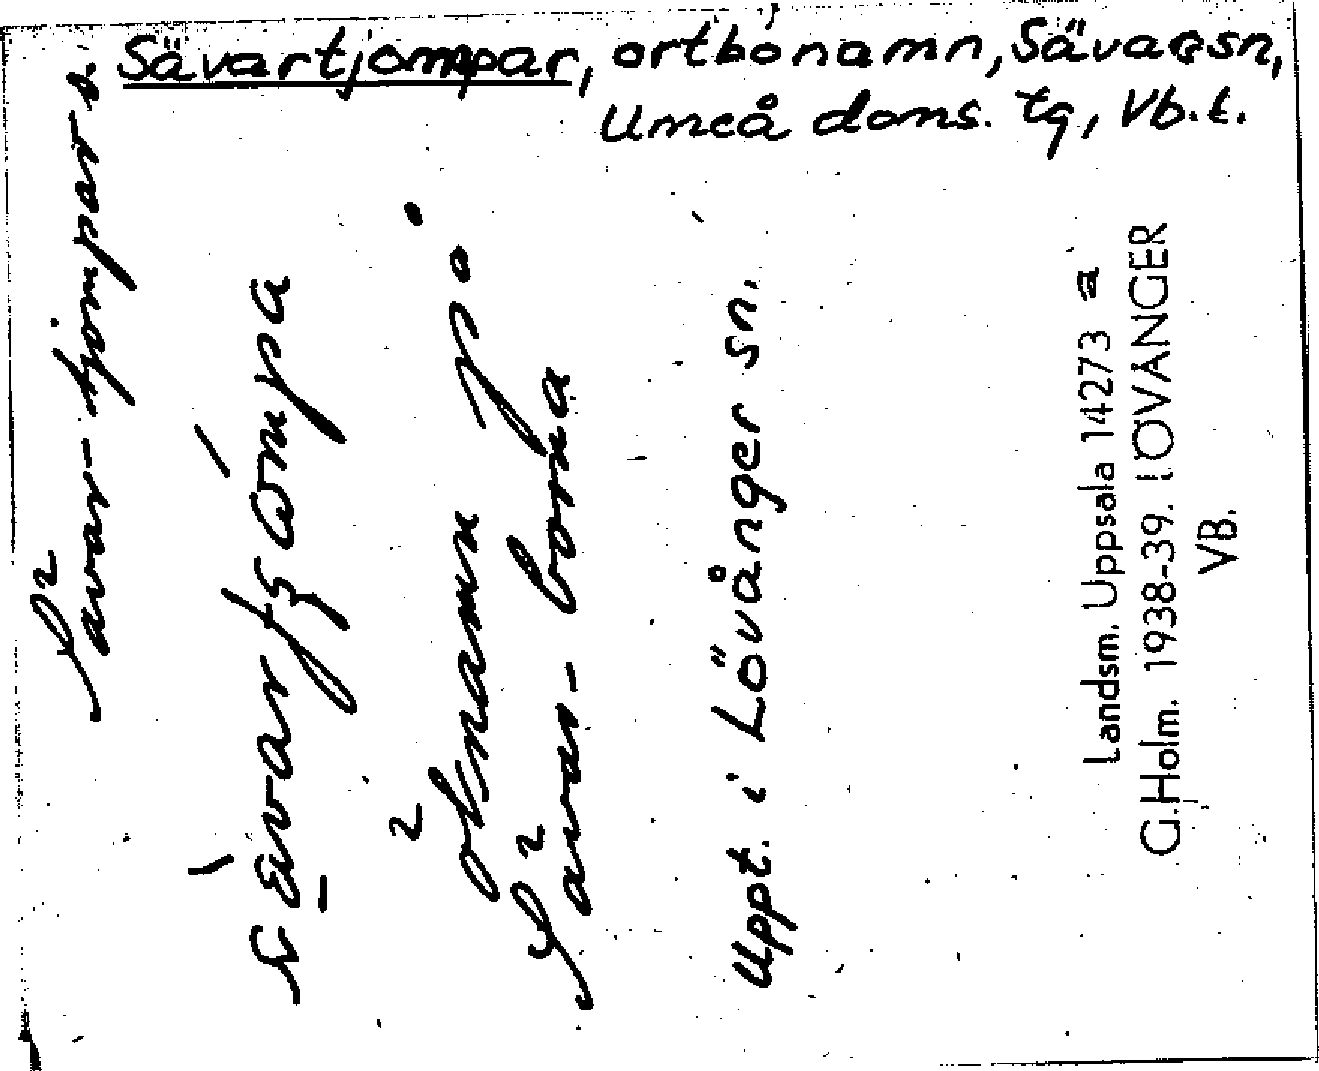 Sävartjompar, ortbónamn, Sävar sn,
Umeå doms. tg, Vb.l.
Sävar-tjompar s.
öknamn på
Sävar-borna
Uppt. i Lövånger sn.
Landsm. Uppsala 14273 a
G. Holm. 1938-39. LÖVÅNGER
VB.